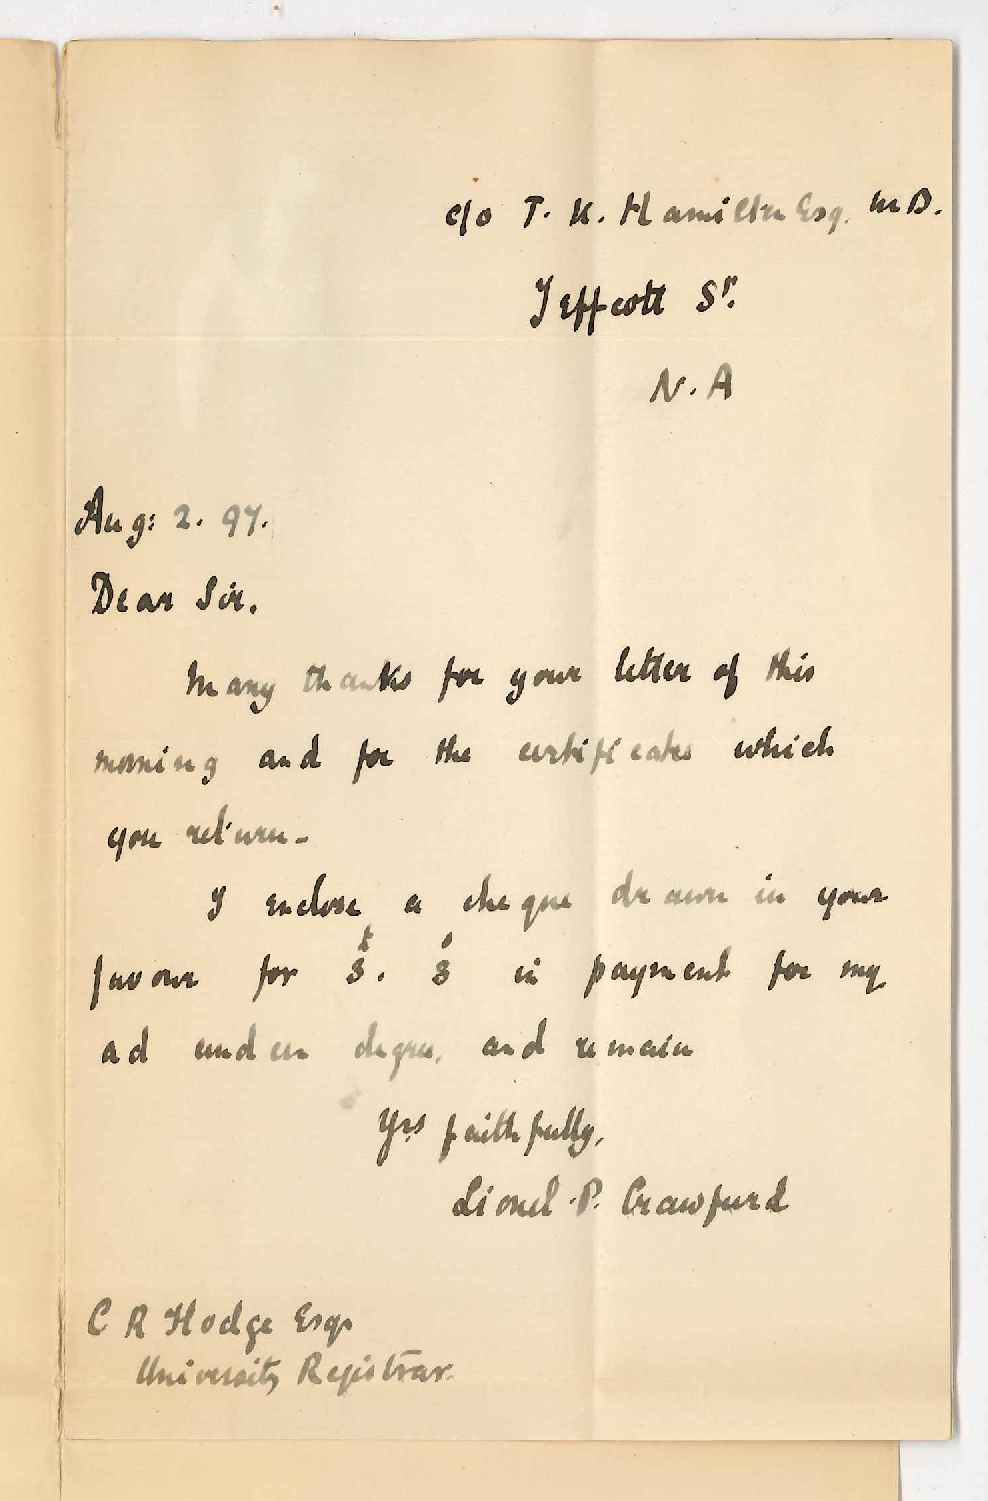 c/o T. K. Hamilton Esq. M D.
Jeffcott St.
N. A
Aug: 2. 97.
Dear Sir.
Many thanks for your letter of this
morning and for the certificates which
you return -
I enclose a cheque drawn in your
favour for £3. 3s in payment for my
ad eundem degree, and remain
Yrs faithfully,
Lionel P. Crawfurd
C R Hodge Esqr
University Registrar.